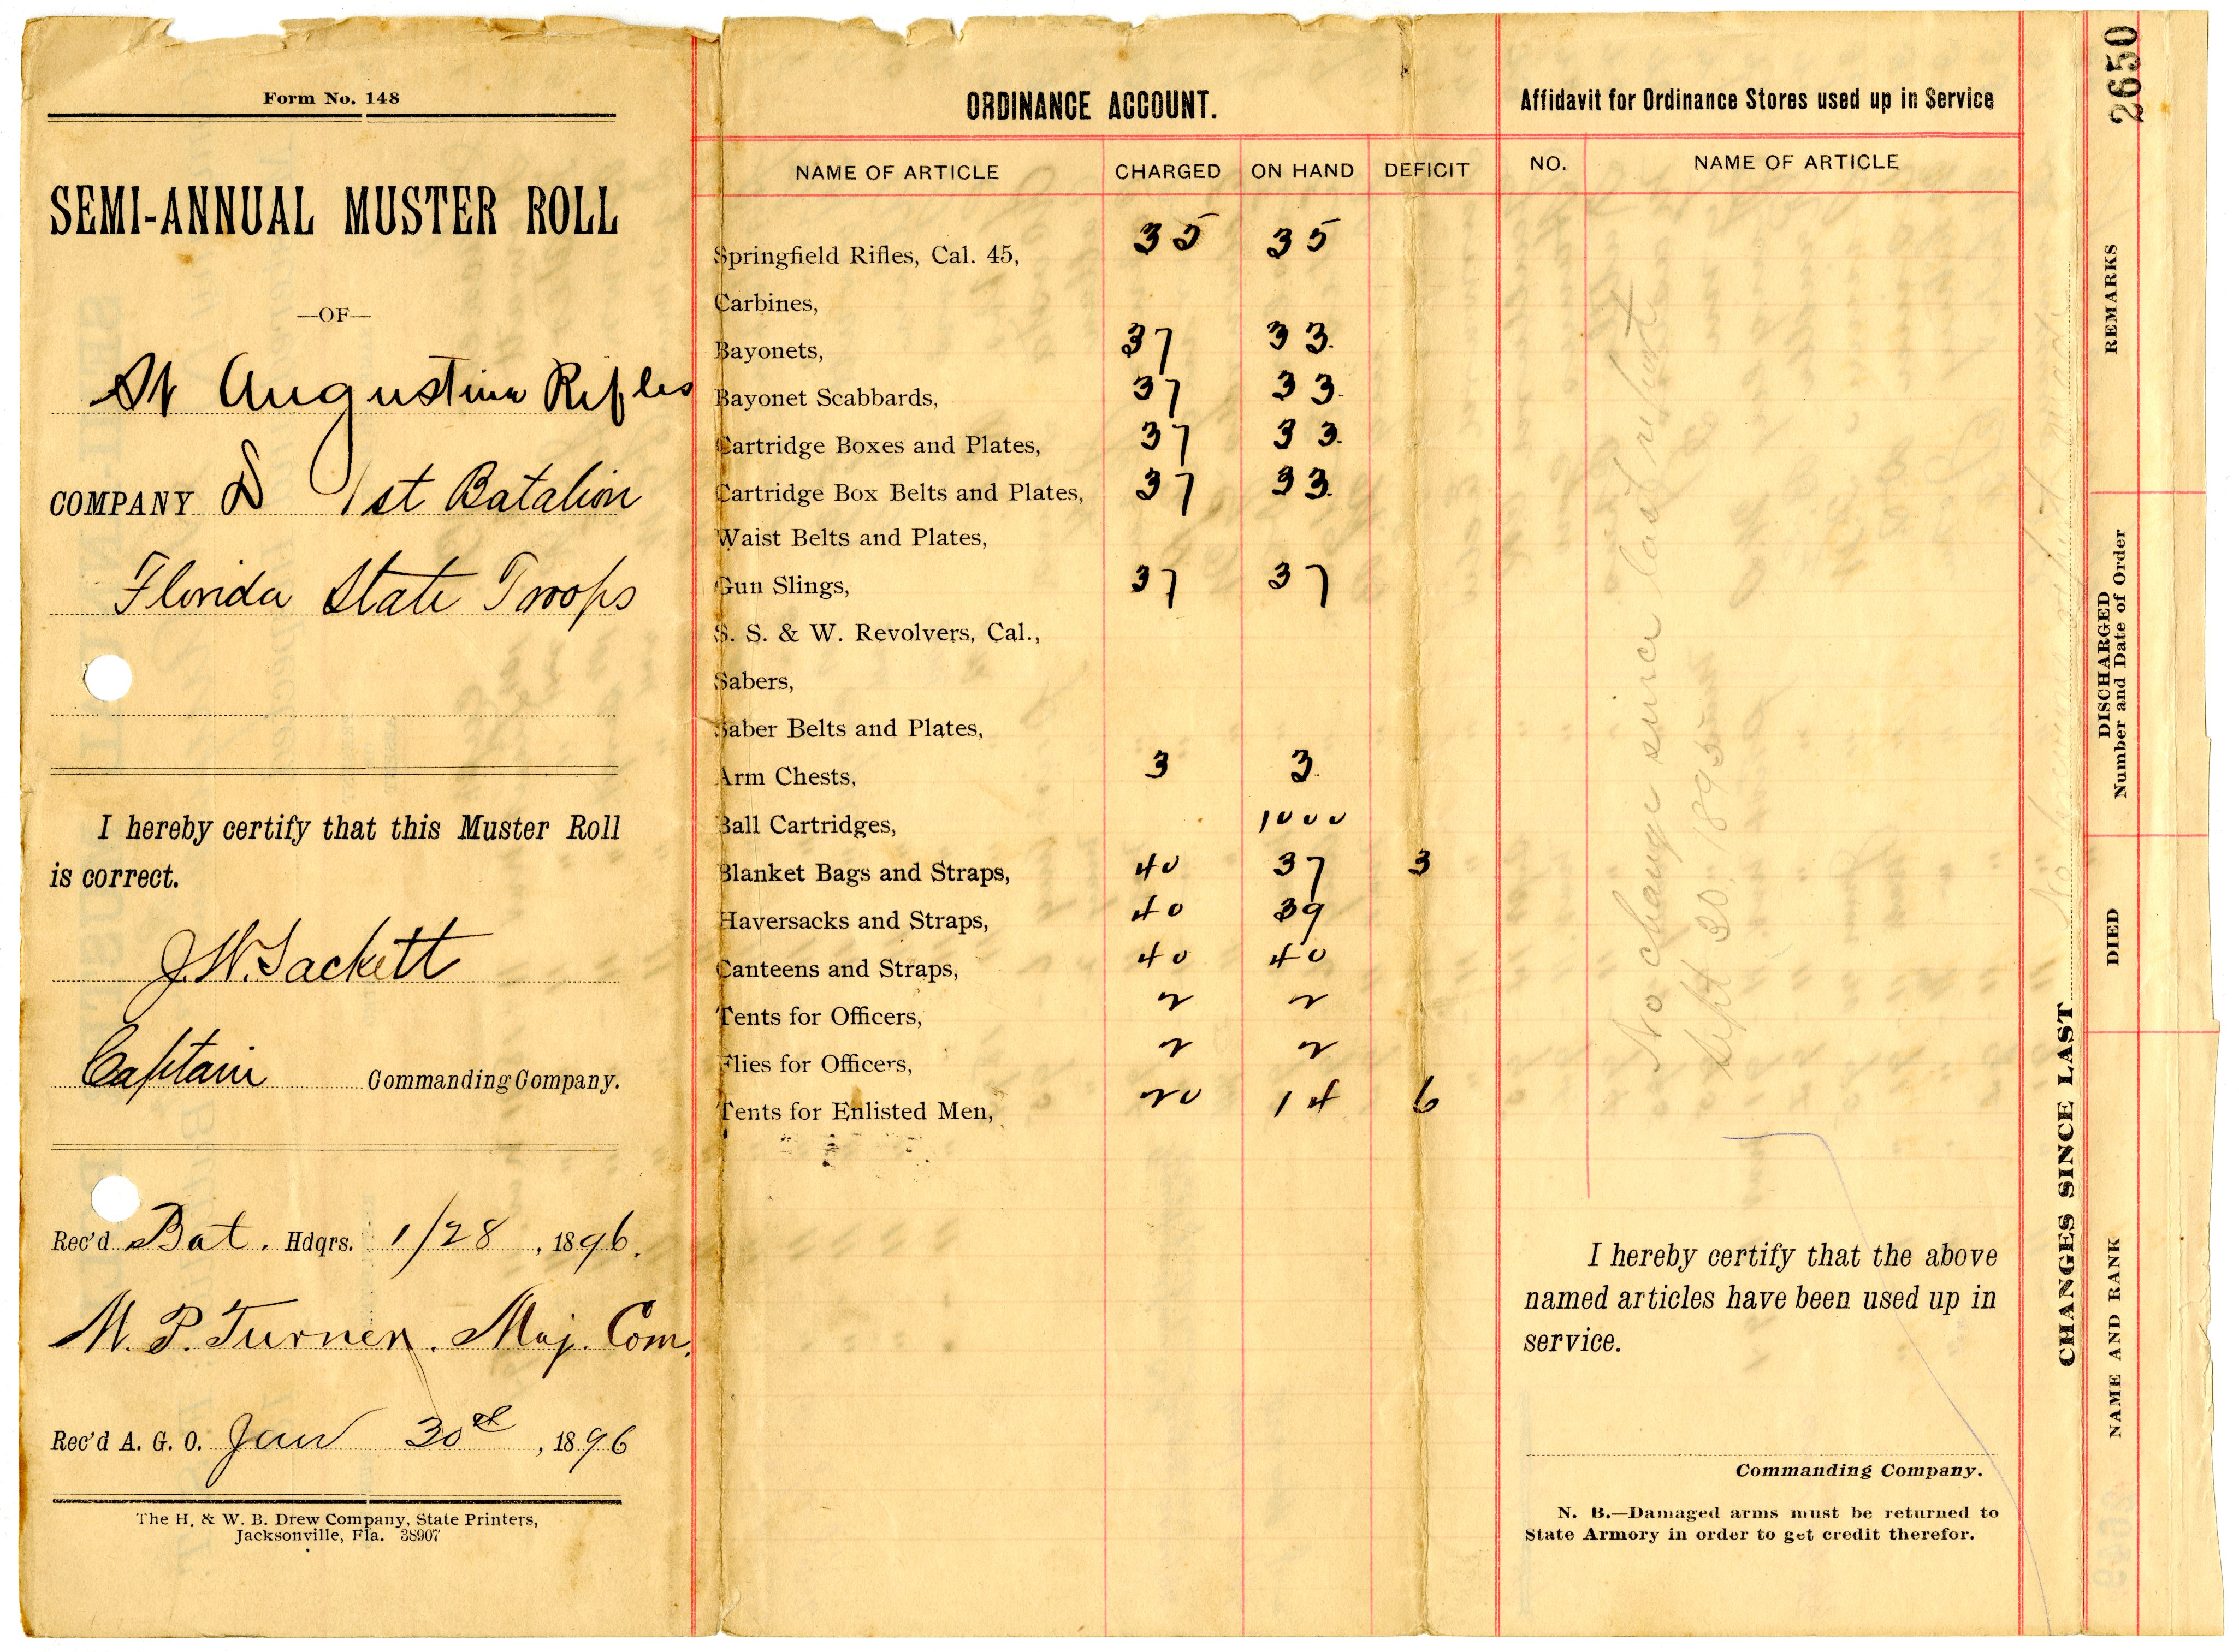 Form No. 148
SEMI-ANNUAL MUSTER ROLL
—OF—
St Augustine Rifles
COMPANY D 1st Batalion
Florida State Troops
I hereby certify that this Muster Roll
is correct.
J.W. Sackett
Captain Commanding Company.
Rec'd Bat. Hdqrs. 1/28, 1896.
M. P. Turner. Maj. Com.
Rec'd A. G. O. Jan 30th, 1896
The H. & W. B. Drew Company, State Printers,
Jacksonville, Fla. 38907
ORDINANCE ACCOUNT.
NAME OF ARTICLE CHARGED ON HAND DEFICIT
Springfield Rifles, Cal. 45, 35 35
Carbines,
Bayonets, 37 33.
Bayonet Scabbards, 37 33.
Cartridge Boxes and Plates, 37 33.
Cartridge Box Belts and Plates, 37 33.
Waist Belts and Plates,
Gun Slings, 37 37
S. S. & W. Revolvers, Cal.,
Sabers,
Saber Belts and Plates,
Arm Chests, 3 3.
Ball Cartridges, 1000
Blanket Bags and Straps, 40 37 3
Haversacks and Straps, 40 39
Canteens and Straps, 40 40
Tents for Officers, 2 2
Flies for Officers, 2 2
Tents for Enlisted Men, 20 14 6
Affidavit for Ordinance Stores used up in Service
NO. NAME OF ARTICLE
No change since last report
Sept 30, 1895
I hereby certify that the above
named articles have been used up in
service.
Commanding Company.
N. B.—Damaged arms must be returned to
State Armory in order to get credit therefor.
CHANGES SINCE LAST
NAME AND RANK
DIED
DISCHARGED
Number and Date of Order
REMARKS
2650